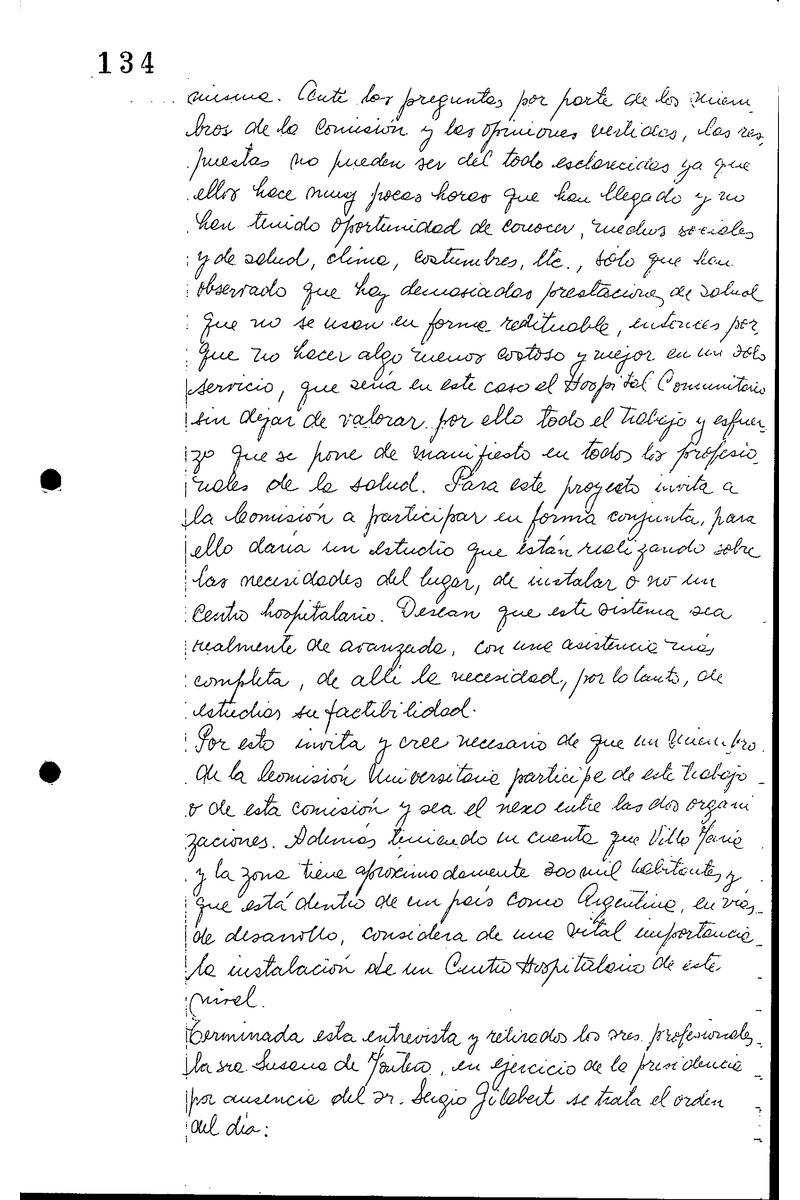 134
misma. Ante las preguntas por parte de los miem-
bros de la Comisión y las opiniones vertidas, las res-
puestas no pueden ser del todo esclarecidas ya que
ellos hace muy pocas horas que han llegado y no
han tenido oportunidad de conocer, medios sociales
y de salud, clima, costumbres, etc., sólo que han
observado que hay demasiadas prestaciones de salud
que no se usan en forma redituable, entonces por
que no hacer algo menos costoso y mejor en un sólo
servicio, que sería en este caso el Hospital Comunitario
sin dejar de valorar por ello todo el trabajo y esfuer-
zo que se pone de manifiesto en todos los profesio-
nales de la salud. Para este proyecto invita a
la Comisión a participar en forma conjunta, para
ello daría un estudio que están realizando sobre
las necesidades del lugar, de instalar o no un
Centro hospitalario. Desean que este sistema sea
realmente de avanzada, con una asistencia más
completa, de allí la necesidad, por lo tanto, de
estudiar su factibilidad.
Por esto invita y cree necesario de que un miembro
de la Comisión Universitaria participe de este trabajo
o de esta comisión y sea el nexo entre las dos organi
zaciones. Además teniendo en cuenta que Villa María
y la zona tiene aproximadamente 300 mil habitantes y
que está dentro de un país como Argentina, en vías
de desarrollo, considera de una vital importancia
la instalación de un Centro Hospitalario de este
nivel.
Terminada esta entrevista y retirados los sres. profesionales
la sra Susana de Montero, en ejercicio de la presidencia
por ausencia del sr. Sergio Gilabert se trata el orden
del día: